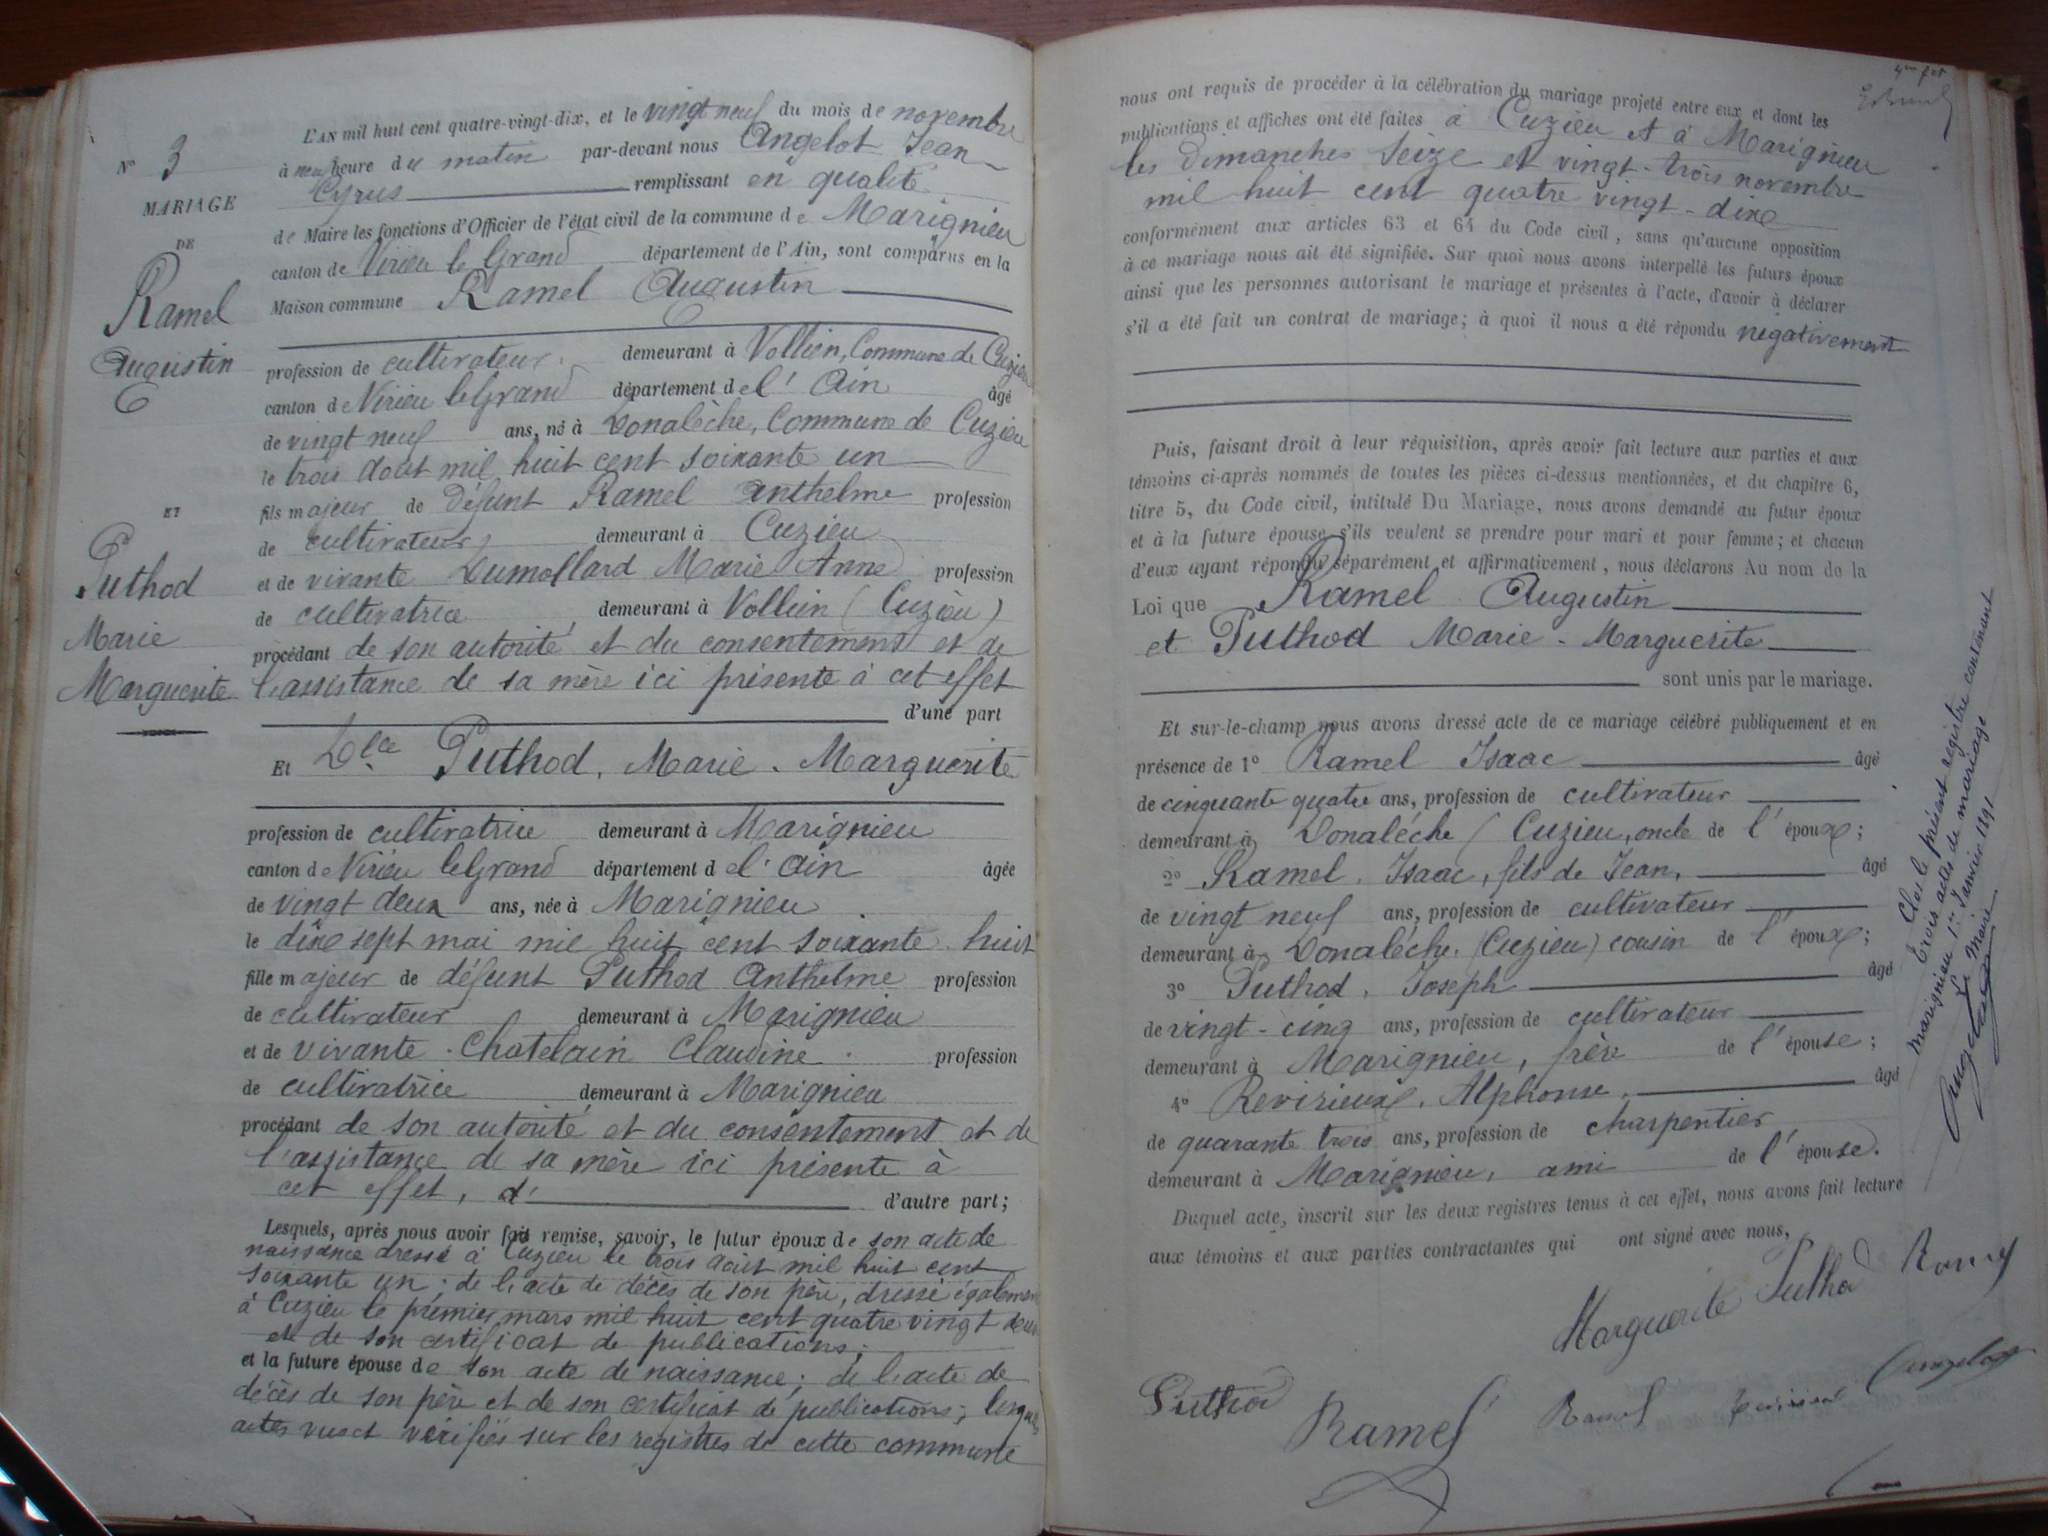 Nº 3
MARIAGE
DE
Ramel
Augustin
ET
Puthod
Marie
Marguerite
L'AN mil huit cent quatre-vingt-dix, et le vingt neuf du mois de novembre
à neuf heure du matin par-devant nous Angelot Jean
Cyrus remplissant en qualité
de Maire les fonctions d'Officier de l'état civil de la commune de Marignieu
canton de Virieu le Grand département de l'Ain, sont comparus en la
Maison commune Ramel Augustin
profession de cultivateur demeurant à Vollien, Commune de Cuzieu
canton de Virieu le Grand département de l'Ain âgé
de vingt neuf ans, né à Donalèche, Commune de Cuzieu
le trois août mil huit cent soixante un
fils majeur de défunt Ramel Anthelme profession
de cultivateur, demeurant à Cuzieu
et de vivante Dumollard Marie Anne profession
de cultivatrice, demeurant à Vollien (Cuzieu)
procédant de son autorité et du consentement et de
l'assistance de sa mère ici présente à cet effet
d'une part
Et Dlle Puthod, Marie-Marguerite
profession de cultivatrice demeurant à Marignieu
canton de Virieu le Grand département de l'Ain âgée
de vingt deux ans, née à Marignieu
le dix sept mai mil huit cent soixante huit
fille majeur de défunt Puthod Anthelme profession
de cultivateur demeurant à Marignieu
et de vivante Chatelain Claudine profession
de cultivatrice demeurant à Marignieu
procédant de son autorité et du consentement et de
l'assistance de sa mère ici présente à
cet effet, d' d'autre part;
Lesquels, après nous avoir fait remise, savoir, le futur époux de son acte de
naissance dressé à Cuzieu le trois août mil huit cent
soixante un; de l'acte de décès de son père, dressé également
à Cuzieu le premier mars mil huit cent quatre vingt deux
et de son certificat de publications;
et la future épouse de son acte de naissance; de l'acte de
décès de son père et de son certificat de publications; lesquels
actes vus et vérifiés sur les registres de cette commune
nous ont requis de procéder à la célébration du mariage projeté entre eux et dont les
publications et affiches ont été faites à Cuzieu et à Marignieu
les dimanches seize et vingt-trois novembre
mil huit cent quatre vingt-dix
conformément aux articles 63 et 64 du Code civil, sans qu'aucune opposition
à ce mariage nous ait été signifiée. Sur quoi nous avons interpellé les futurs époux
ainsi que les personnes autorisant le mariage et présentes à l'acte, d'avoir à déclarer
s'il a été fait un contrat de mariage; à quoi il nous a été répondu négativement
Puis, faisant droit à leur réquisition, après avoir fait lecture aux parties et aux
témoins ci-après nommés de toutes les pièces ci-dessus mentionnées, et du chapitre 6,
titre 5, du Code civil, intitulé Du Mariage, nous avons demandé au futur époux
et à la future épouse s'ils veulent se prendre pour mari et pour femme; et chacun
d'eux ayant répondu séparément et affirmativement, nous déclarons Au nom de la
Loi que Ramel Augustin
et Puthod Marie-Marguerite
sont unis par le mariage.
Et sur-le-champ nous avons dressé acte de ce mariage célébré publiquement et en
présence de 1º Ramel Isaac âgé
de cinquante quatre ans, profession de cultivateur
demeurant à Donalèche (Cuzieu, oncle de l'époux;
2º Ramel, Isaac, fils de Jean, âgé
de vingt neuf ans, profession de cultivateur
demeurant à Donalèche, (Cuzieu) cousin de l'époux;
3º Puthod, Joseph âgé
de vingt-cinq ans, profession de cultivateur
demeurant à Marignieu, frère de l'épouse;
4º Revirieux, Alphonse, âgé
de quarante trois ans, profession de charpentier
demeurant à Marignieu, ami de l'épouse.
Duquel acte, inscrit sur les deux registres tenus à cet effet, nous avons fait lecture
aux témoins et aux parties contractantes qui ont signé avec nous,
Marguerite Puthod Ramel
Puthod Ramel Ramel Revirieux Angelot
Clos le présent registre contenant
trois actes de mariage
Marignieu 1er Janvier 1891
Le Maire
Angelot